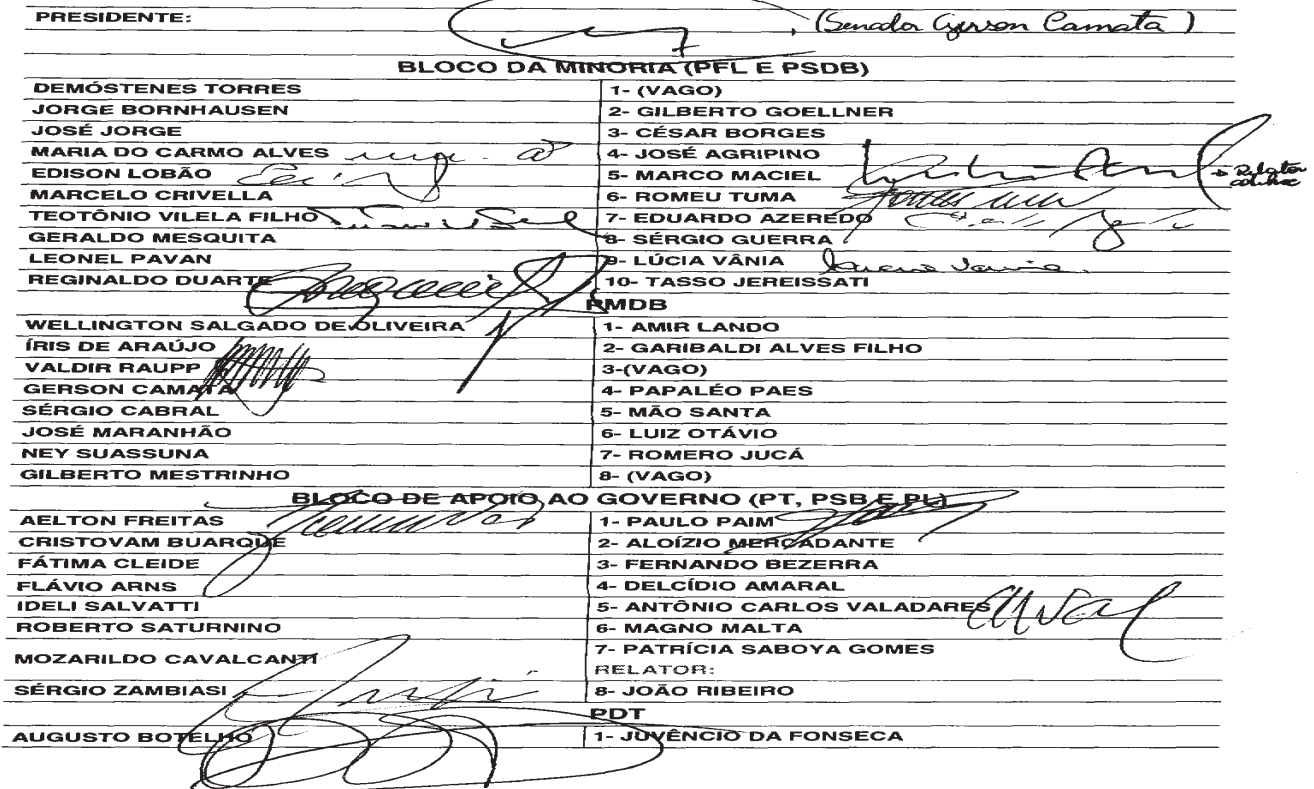 PRESIDENTE: (Senador Gerson Camata)
BLOCO DA MINORIA (PFL E PSDB)
DEMÓSTENES TORRES 1- (VAGO)
JORGE BORNHAUSEN 2- GILBERTO GOELLNER
JOSÉ JORGE 3- CÉSAR BORGES
MARIA DO CARMO ALVES 4- JOSÉ AGRIPINO
EDISON LOBÃO 5- MARCO MACIEL Relator
MARCELO CRIVELLA 6- ROMEU TUMA
TEOTÔNIO VILELA FILHO 7- EDUARDO AZEREDO
GERALDO MESQUITA 8- SÉRGIO GUERRA
LEONEL PAVAN 9- LÚCIA VÂNIA
REGINALDO DUARTE 10- TASSO JEREISSATI
PMDB
WELLINGTON SALGADO DE OLIVEIRA 1- AMIR LANDO
ÍRIS DE ARAÚJO 2- GARIBALDI ALVES FILHO
VALDIR RAUPP 3-(VAGO)
GERSON CAMATA 4- PAPALÉO PAES
SÉRGIO CABRAL 5- MÃO SANTA
JOSÉ MARANHÃO 6- LUIZ OTÁVIO
NEY SUASSUNA 7- ROMERO JUCÁ
GILBERTO MESTRINHO 8- (VAGO)
BLOCO DE APOIO AO GOVERNO (PT, PSB E PL)
AELTON FREITAS 1- PAULO PAIM
CRISTOVAM BUARQUE 2- ALOÍZIO MERCADANTE
FÁTIMA CLEIDE 3- FERNANDO BEZERRA
FLÁVIO ARNS 4- DELCÍDIO AMARAL
IDELI SALVATTI 5- ANTÔNIO CARLOS VALADARES
ROBERTO SATURNINO 6- MAGNO MALTA
MOZARILDO CAVALCANTI 7- PATRÍCIA SABOYA GOMES
RELATOR:
SÉRGIO ZAMBIASI 8- JOÃO RIBEIRO
PDT
AUGUSTO BOTELHO 1- JUVÊNCIO DA FONSECA